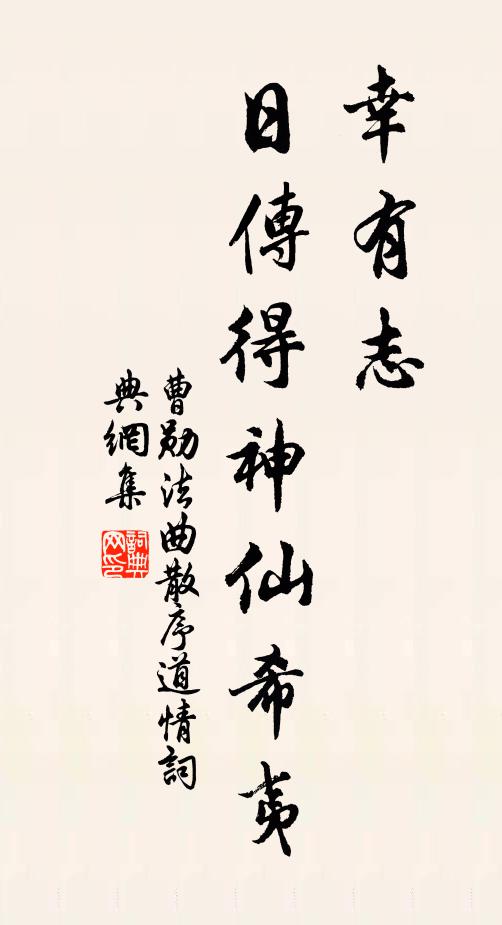 幸有志
日傳得神仙希夷
曹勛法曲散序道情詞
典網集
詞典
网印